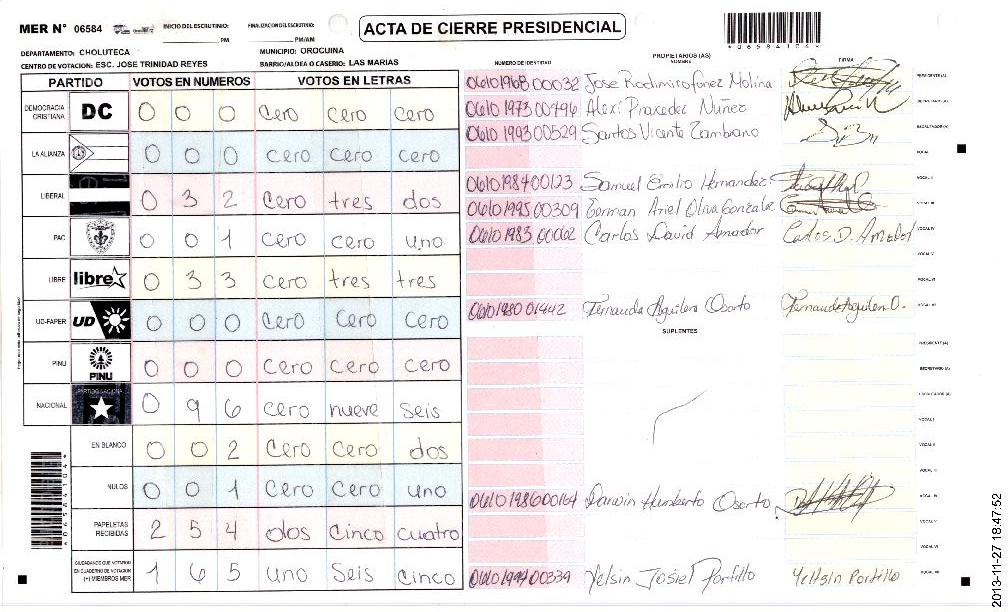 MER N° 06584
INICIO DEL ESCRUTINIO: PM
FINALIZACION DEL ESCRUTINIO: PM/AM
ACTA DE CIERRE PRESIDENCIAL
*06584104*
DEPARTAMENTO: CHOLUTECA
MUNICIPIO: OROCUINA
CENTRO DE VOTACION: ESC. JOSE TRINIDAD REYES
BARRIO/ALDEA O CASERIO: LAS MARIAS
PARTIDO VOTOS EN NUMEROS VOTOS EN LETRAS
DEMOCRACIA CRISTIANA DC 0 0 0 Cero Cero Cero
LA ALIANZA 0 0 0 Cero Cero Cero
LIBERAL 0 3 2 Cero tres dos
PAC 0 0 1 Cero Cero uno
LIBRE libre 0 3 3 Cero tres tres
UD-FAPER UD 0 0 0 Cero Cero Cero
PINU PINU 0 0 0 Cero Cero Cero
NACIONAL 0 9 6 Cero nueve Seis
EN BLANCO 0 0 2 Cero Cero dos
NULOS 0 0 1 Cero Cero uno
PAPELETAS RECIBIDAS 2 5 4 dos Cinco cuatro
CIUDADANOS QUE VOTARON EN CUADERNO DE VOTACION (+) MIEMBROS MER 1 6 5 uno Seis Cinco
*06584104*
PROPIETARIOS (AS)
NUMERO DE IDENTIDAD NOMBRE FIRMA
0610196800032 Jose Rodimiro Molina PRESIDENTE (A)
0610197300496 Alexi Praxedez Nuñez SECRETARIO (A)
0610199300529 Santos Vicente Zambrano ESCRUTADOR (A)
VOCAL I
0610198400123 Samuel Emilio Hernandez VOCAL II
0610199500309 German Ariel Oliva Gonzalez VOCAL III
0610198300062 Carlos David Amador Carlos D. Amador VOCAL IV
VOCAL V
VOCAL VI
0610198001442 Fernanda Aguilera Osorto Fernanda Aguilera O. VOCAL VII
SUPLENTES
PRESIDENTE (A)
SECRETARIO (A)
ESCRUTADOR (A)
VOCAL I
VOCAL II
VOCAL III
0610198600164 Darwin Humberto Osorto VOCAL IV
VOCAL V
VOCAL VI
0610199400339 Yelsin Josiel Portillo Yelsin Portillo VOCAL VII
2013-11-27 18:47:52